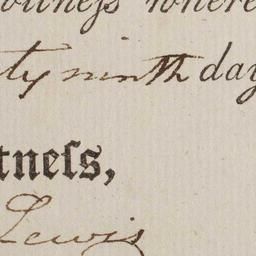 witneſs where
ty ninth day
tneſs,
Lewis